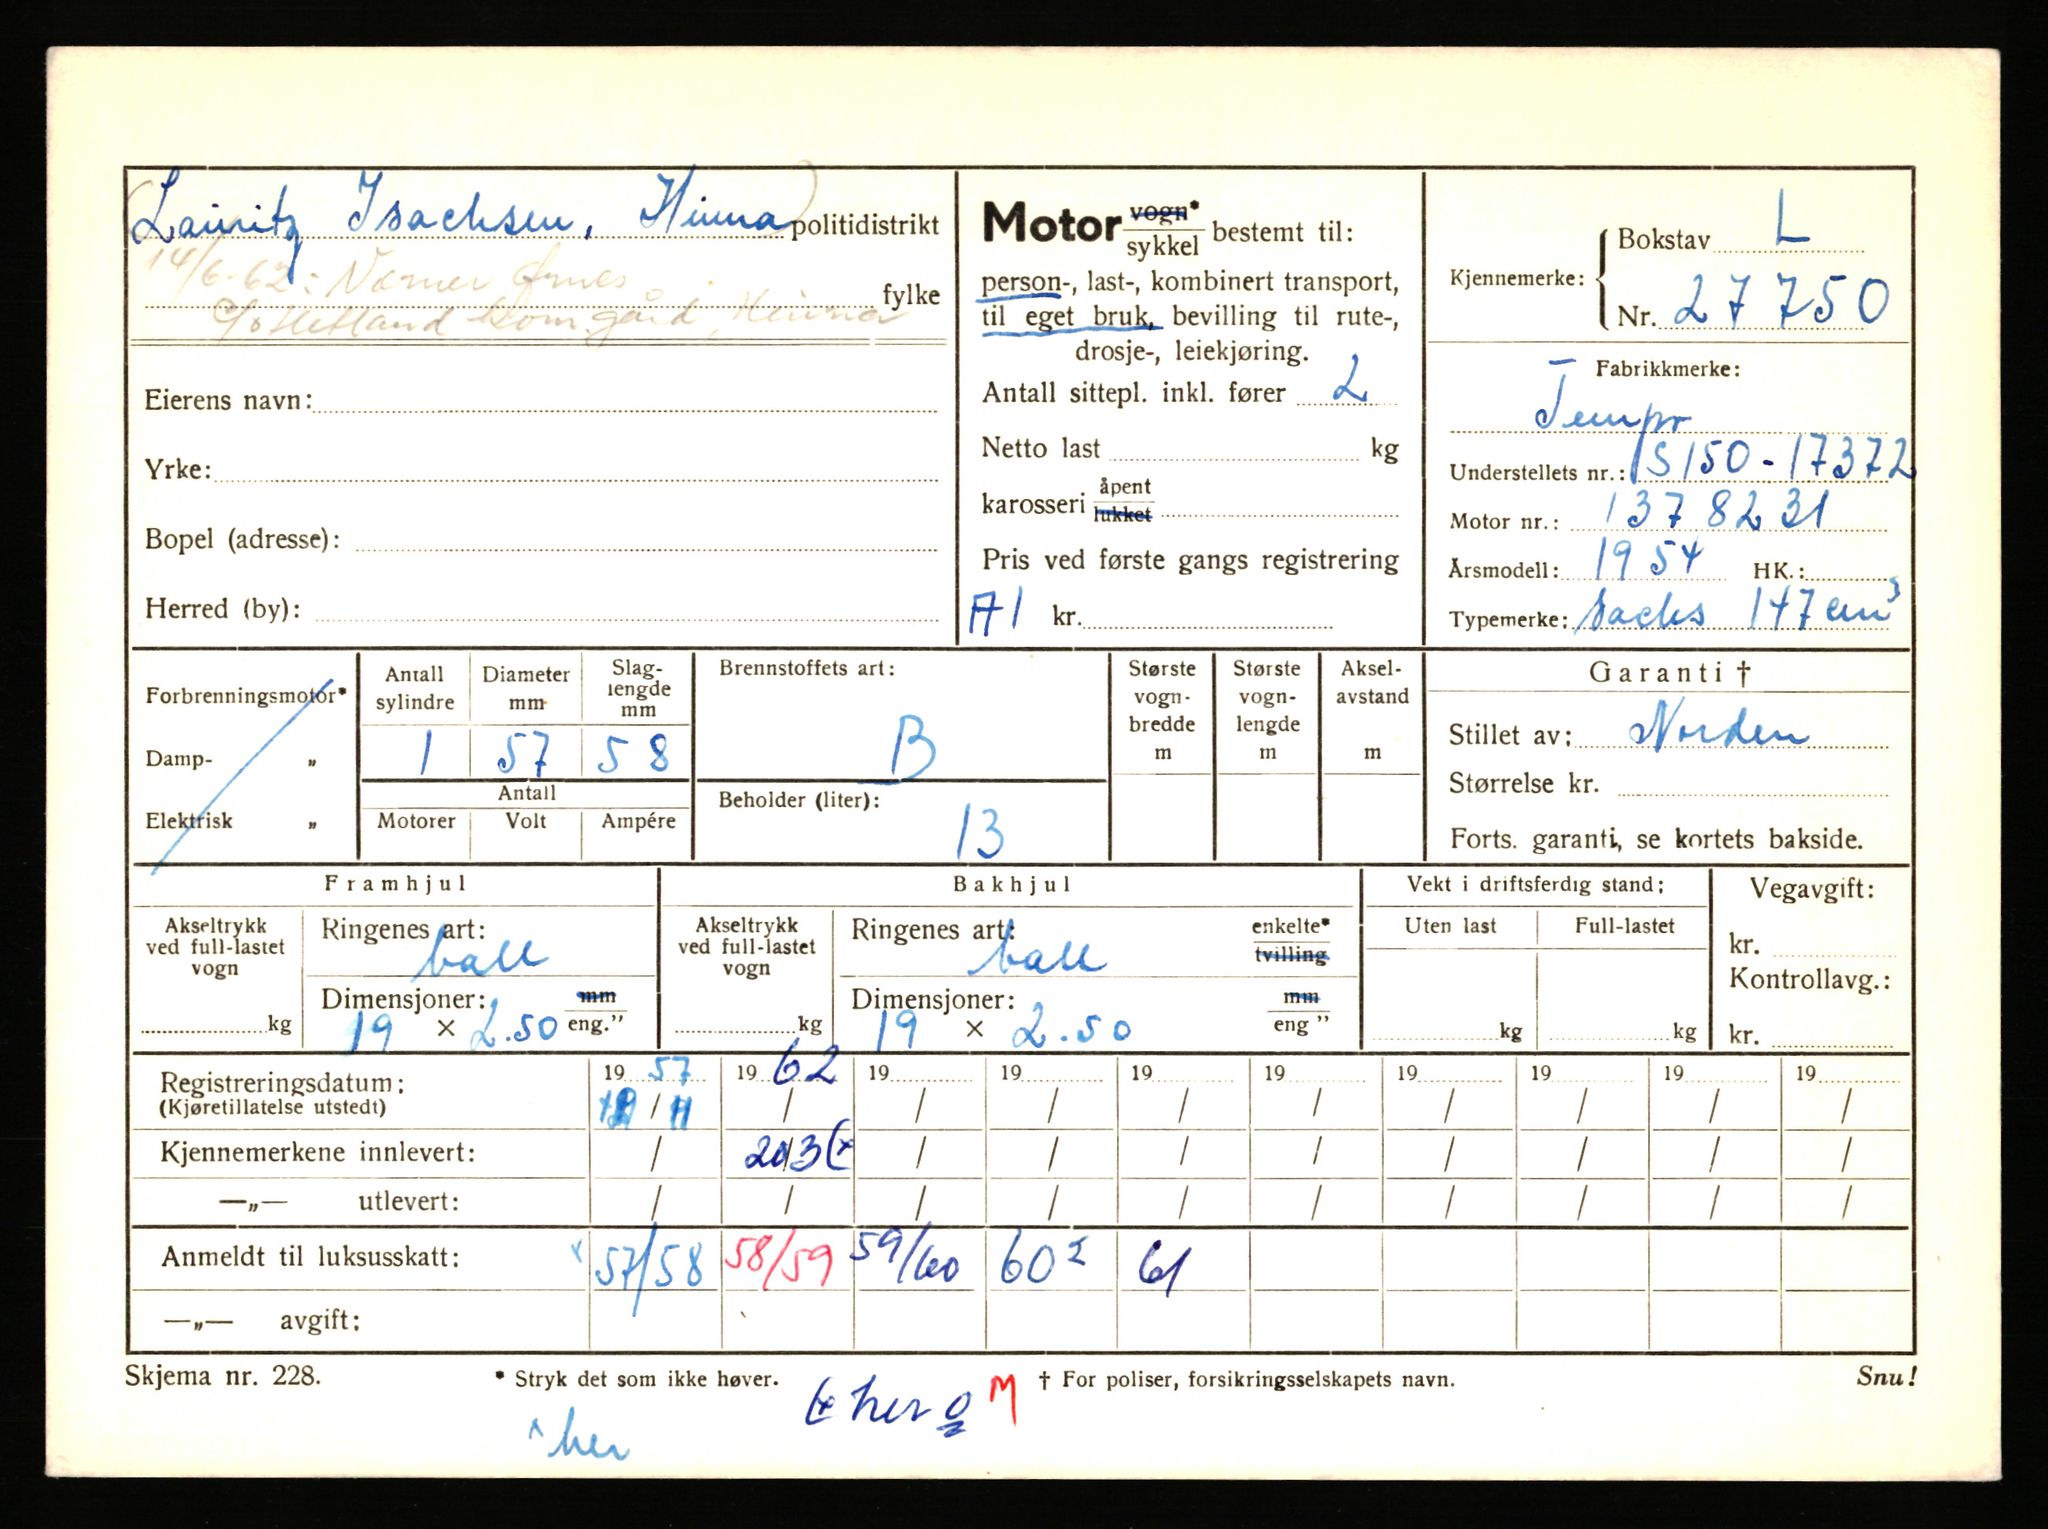 Lauritz Isachsen, Hinna politidistrikt
14/6-62: Værner Årnes
fylke
c/o Hetland kom.gård, Hinna
Eierens navn:
Yrke:
Bopel (adresse):
Herred (by):
Motor vogn* / sykkel bestemt til:
person-, last-, kombinert transport,
til eget bruk, bevilling til rute-,
drosje-, leiekjøring.
Antall sittepl. inkl. fører 2
Netto last kg
karosseri åpent / lukket
Pris ved første gangs registrering
A1 kr.
Kjennemerke: Bokstav L
Nr. 27750
Fabrikkmerke:
Tempo
Understellets nr.: S150-17372
Motor nr.: 1378231
Årsmodell: 1954 HK.:
Typemerke: Sachs 147 cm³
Forbrenningsmotor*
Damp- „
Elektrisk „
Antall sylindre Diameter mm Slag-lengde mm
1 57 58
Antall
Motorer Volt Ampére
Brennstoffets art:
B
Beholder (liter):
13
Største vogn-bredde m
Største vogn-lengde m
Aksel-avstand m
Garanti †
Stillet av: Norden
Størrelse kr.
Forts. garanti, se kortets bakside.
Framhjul
Akseltrykk ved full-lastet vogn kg
Ringenes art:
ball
Dimensjoner: mm
19 × 2.50 eng.”
Bakhjul
Akseltrykk ved full-lastet vogn kg
Ringenes art: enkelte* / tvilling
ball
Dimensjoner: mm
19 × 2.50 eng ”
Vekt i driftsferdig stand:
Uten last Full-lastet
kg kg
Vegavgift:
kr.
Kontrollavg.:
kr.
Registreringsdatum: 19 57 19 62 19 19 19 19 19 19 19 19
(Kjøretillatelse utstedt) / / / / / / / / / /
Kjennemerkene innlevert: / 20/3 (x / / / / / / / /
—„— utlevert: / / / / / / / / / /
Anmeldt til luksusskatt: x 57/58 58/59 59/60 60² 61
—„— avgift:
Skjema nr. 228. * Stryk det som ikke høver. † For poliser, forsikringsselskapets navn. Snu!
(x her o M
x her